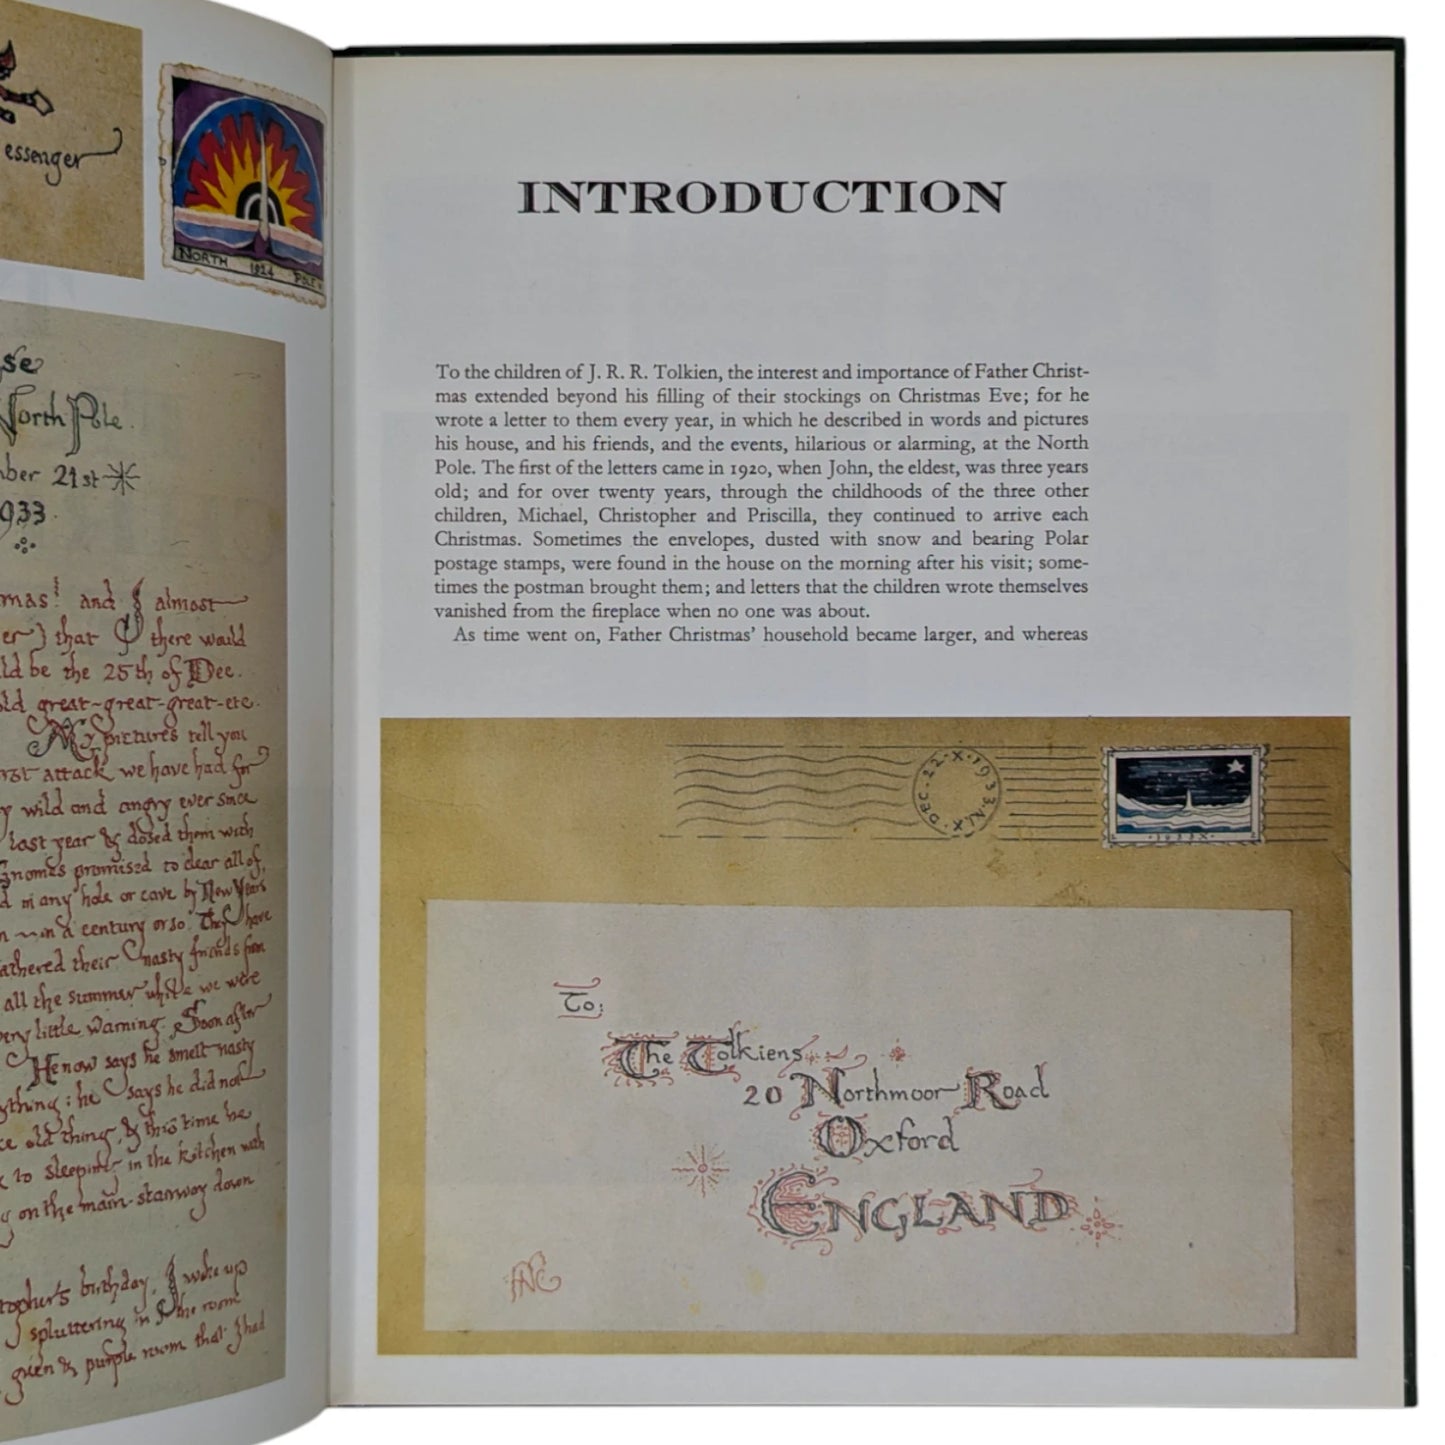 essenger
NORTH 1924 POLE
se
North Pole.
ber 21st
933.
mas! and I almost
er) that I there would
ld be the 25th of Dec.
ld great-great-great-etc.
My pictures tell you
rst attack we have had for
y wild and angry ever since
last year & dosed them with
Gnomes promised to clear all of
d in any hole or cave by New Years
n in a century or so. They have
athered their nasty friends from
all the summer while we were
very little warning. Soon after
He now says he smelt nasty
ything: he says he did not
ce old thing, & this time he
k to sleeping in the kitchen with
g on the main-stairway down
topher's birthday. I woke up
spluttering in the room
green & purple room that I had
INTRODUCTION
To the children of J. R. R. Tolkien, the interest and importance of Father Christ-
mas extended beyond his filling of their stockings on Christmas Eve; for he
wrote a letter to them every year, in which he described in words and pictures
his house, and his friends, and the events, hilarious or alarming, at the North
Pole. The first of the letters came in 1920, when John, the eldest, was three years
old; and for over twenty years, through the childhoods of the three other
children, Michael, Christopher and Priscilla, they continued to arrive each
Christmas. Sometimes the envelopes, dusted with snow and bearing Polar
postage stamps, were found in the house on the morning after his visit; some-
times the postman brought them; and letters that the children wrote themselves
vanished from the fireplace when no one was about.
As time went on, Father Christmas' household became larger, and whereas
DEC. 22. X. 1933. N.X
1933
To:
The Tolkiens
20 Northmoor Road
Oxford
ENGLAND